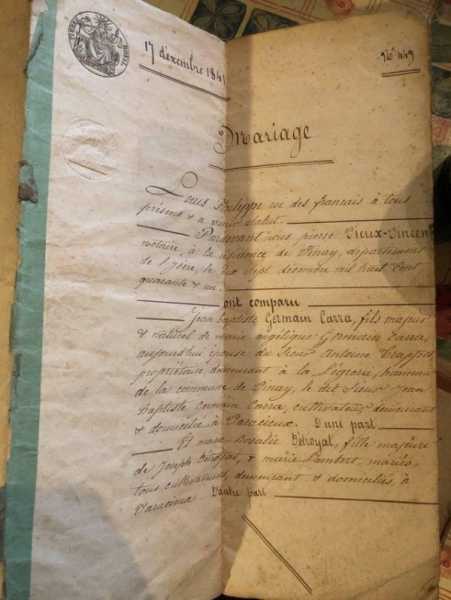 17 décembre 1841
No 449
Mariage
Louis Philippe roi des français à tous
présens & à venir salut.
Pardevant nous pierre Vieux-Vincent
notaire, à la résidence de Vinay, département
de l'isère, le dix sept décembre mil huit cent
quarante & un.
ont comparu
Jean Baptiste Germain Carra, fils majeur
& naturel de marie angélique Germain Carra,
aujourd'hui épouse du Sieur Antoine
propriétaire demeurant à la hameau
de la commune de Vinay, le dit Sieur jean
Baptiste Germain Carra, cultivateur demeurant
& domicilié à
D'une part.
Et marie Rosalie fille majeure
de Joseph & marie Lambert, mariés,
tous cultivateurs, demeurant & domiciliés, à
Varacieux
D'autre part